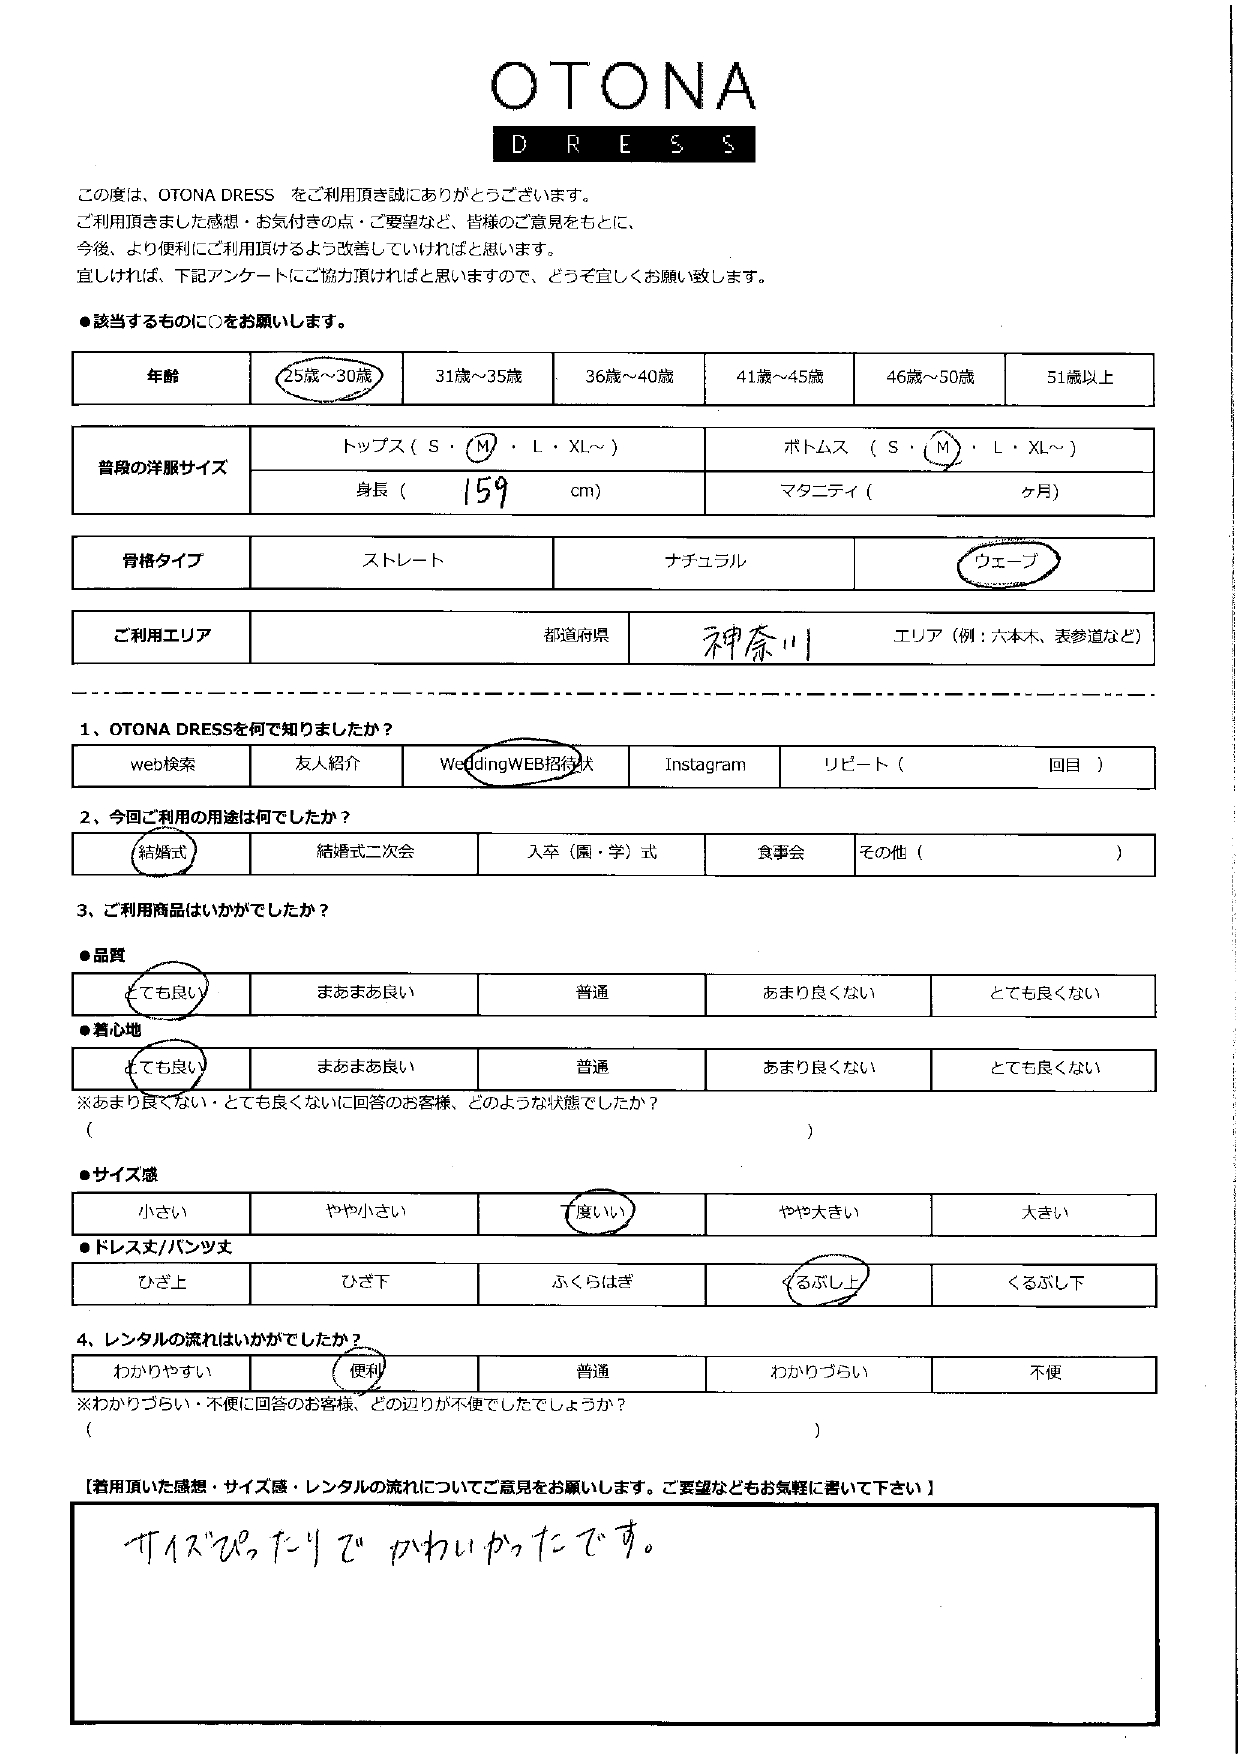 OTONA
DRESS
この度は、OTONA DRESS　をご利用頂き誠にありがとうございます。
ご利用頂きました感想・お気付きの点・ご要望など、皆様のご意見をもとに、
今後、より便利にご利用頂けるよう改善していければと思います。
宜しければ、下記アンケートにご協力頂ければと思いますので、どうぞ宜しくお願い致します。
●該当するものに○をお願いします。
年齢 25歳～30歳 31歳～35歳 36歳～40歳 41歳～45歳 46歳～50歳 51歳以上
普段の洋服サイズ
トップス（ S ・ M ・ L ・ XL～ ） ボトムス （ S ・ M ・ L ・ XL～ ）
身長（ 159 cm） マタニティ（ ヶ月）
骨格タイプ ストレート ナチュラル ウェーブ
ご利用エリア 都道府県 神奈川 エリア（例：六本木、表参道など）
1、OTONA DRESSを何で知りましたか？
web検索 友人紹介 WeddingWEB招待状 Instagram リピート（ 回目 ）
2、今回ご利用の用途は何でしたか？
結婚式 結婚式二次会 入卒（園・学）式 食事会 その他（ ）
3、ご利用商品はいかがでしたか？
●品質
とても良い まあまあ良い 普通 あまり良くない とても良くない
●着心地
とても良い まあまあ良い 普通 あまり良くない とても良くない
※あまり良くない・とても良くないに回答のお客様、どのような状態でしたか？
（ ）
●サイズ感
小さい やや小さい 丁度いい やや大きい 大きい
●ドレス丈/パンツ丈
ひざ上 ひざ下 ふくらはぎ くるぶし上 くるぶし下
4、レンタルの流れはいかがでしたか？
わかりやすい 便利 普通 わかりづらい 不便
※わかりづらい・不便に回答のお客様、どの辺りが不便でしたでしょうか？
（ ）
【着用頂いた感想・サイズ感・レンタルの流れについてご意見をお願いします。ご要望などもお気軽に書いて下さい 】
サイズぴったりで かわいかったです。